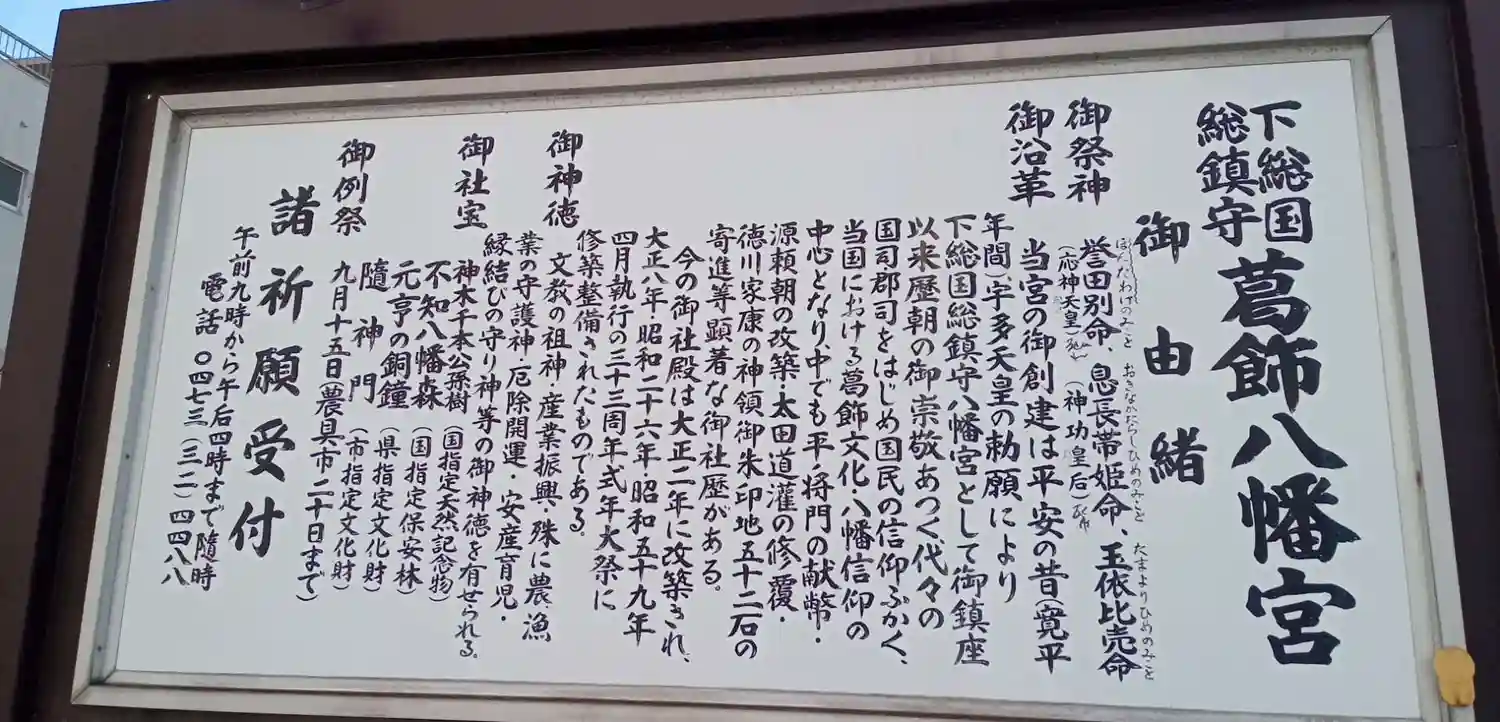 下総国
総鎮守
葛飾八幡宮
御由緒
御祭神
誉田別命、息長帯姫命、玉依比売命
ほんだわけのみこと おきながたらしひめのみこと たまよりひめのみこと
(応神天皇) (神功皇后)
御沿革
当宮の御創建は平安の昔(寛平
年間)、宇多天皇の勅願により
下総国総鎮守八幡宮として御鎮座
以来歴朝の御崇敬あつく、代々の
国司郡司をはじめ国民の信仰ふかく、
当国における葛飾文化・八幡信仰の
中心となり、中でも平ノ将門の献幣・
源頼朝の改築・太田道灌の修覆・
徳川家康の神領御朱印地五十二石の
寄進等顕著な御社歴がある。
今の御社殿は大正二年に改築され、
大正八年昭和二十六年昭和五十九年
四月執行の三十三周年式年大祭に
修築整備されたものである。
御神徳
文教の祖神・産業振興、殊に農、漁
業の守護神、厄除開運・安産育児・
縁結びの守り神等の御神徳を有せられる。
御社宝
神木千本公孫樹(国指定天然記念物)
不知八幡森(国指定保安林)
元亨の銅鐘(県指定文化財)
隨神門(市・指定文化財)
御例祭
九月十五日(農具市二十日まで)
諸祈願受付
午前九時から午后四時まで随時
電話 〇四七三(三二)四四八八